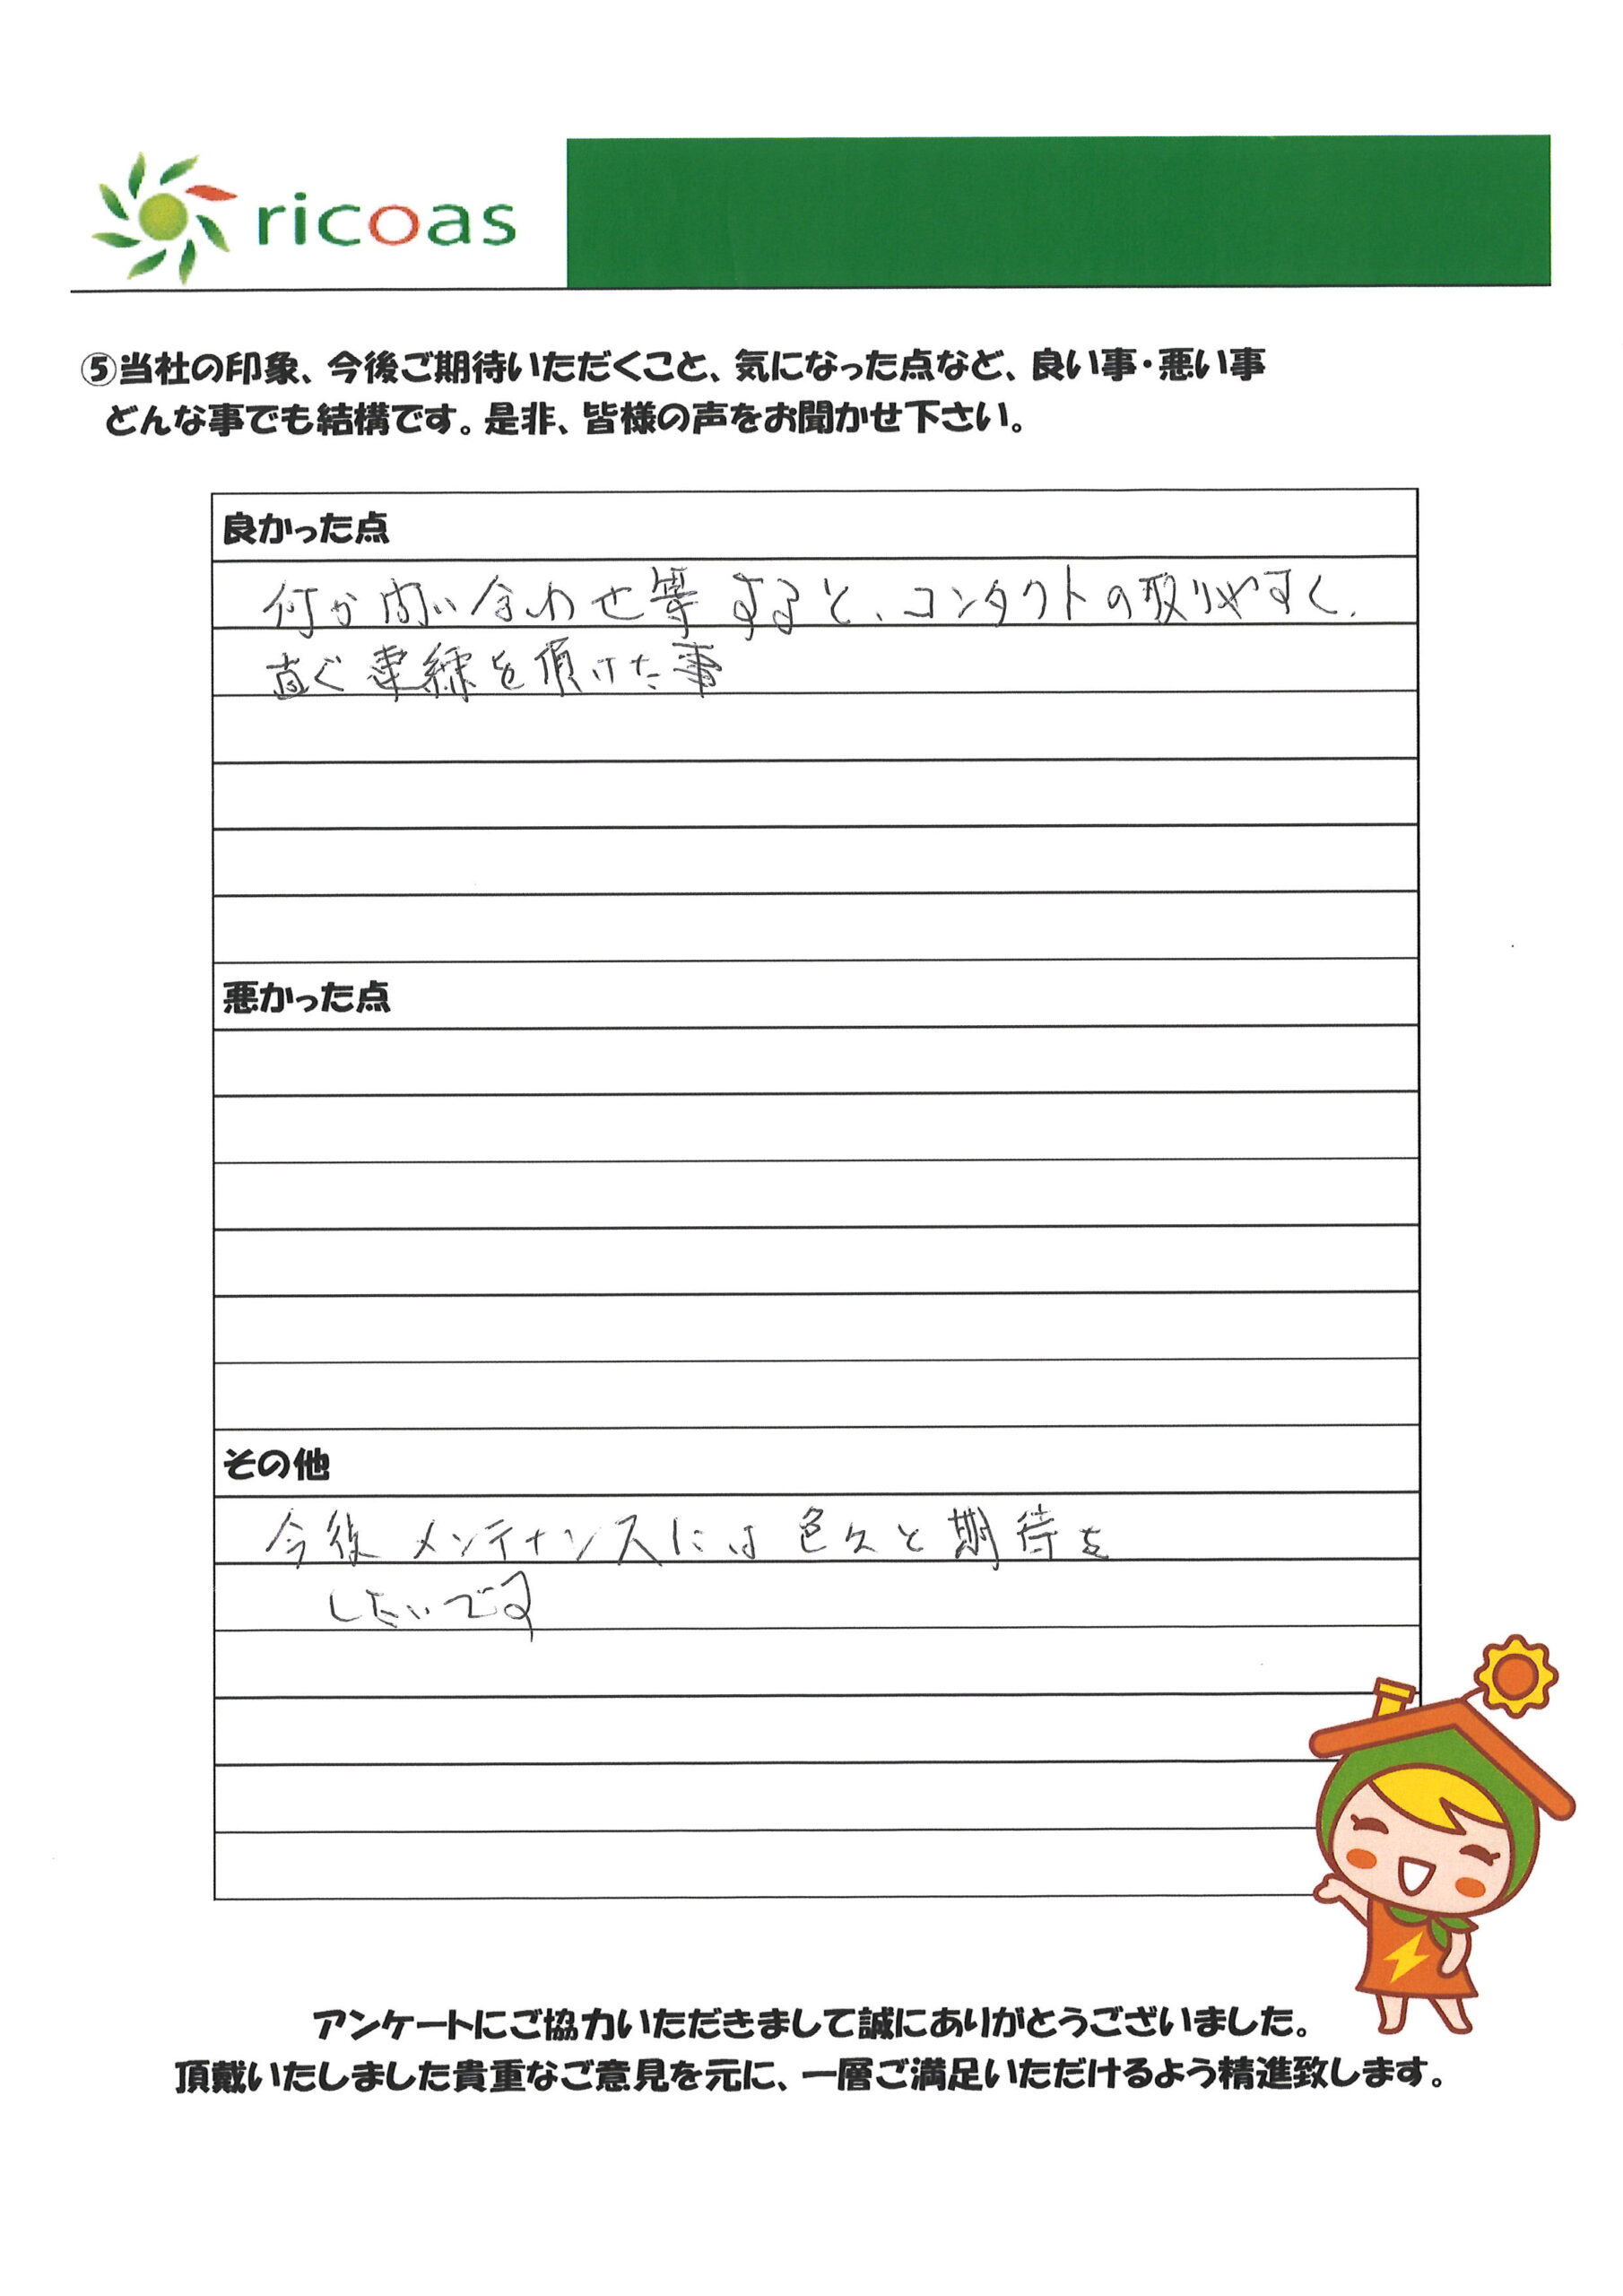 ricoas
⑤当社の印象、今後ご期待いただくこと、気になった点など、良い事・悪い事
どんな事でも結構です。是非、皆様の声をお聞かせ下さい。
良かった点
何か問い合わせ等すると、コンタクトの取りやすく、
直ぐ連絡を頂けた事
悪かった点
その他
今後メンテナンスには色々と期待を
したいです
アンケートにご協力いただきまして誠にありがとうございました。
頂戴いたしました貴重なご意見を元に、一層ご満足いただけるよう精進致します。